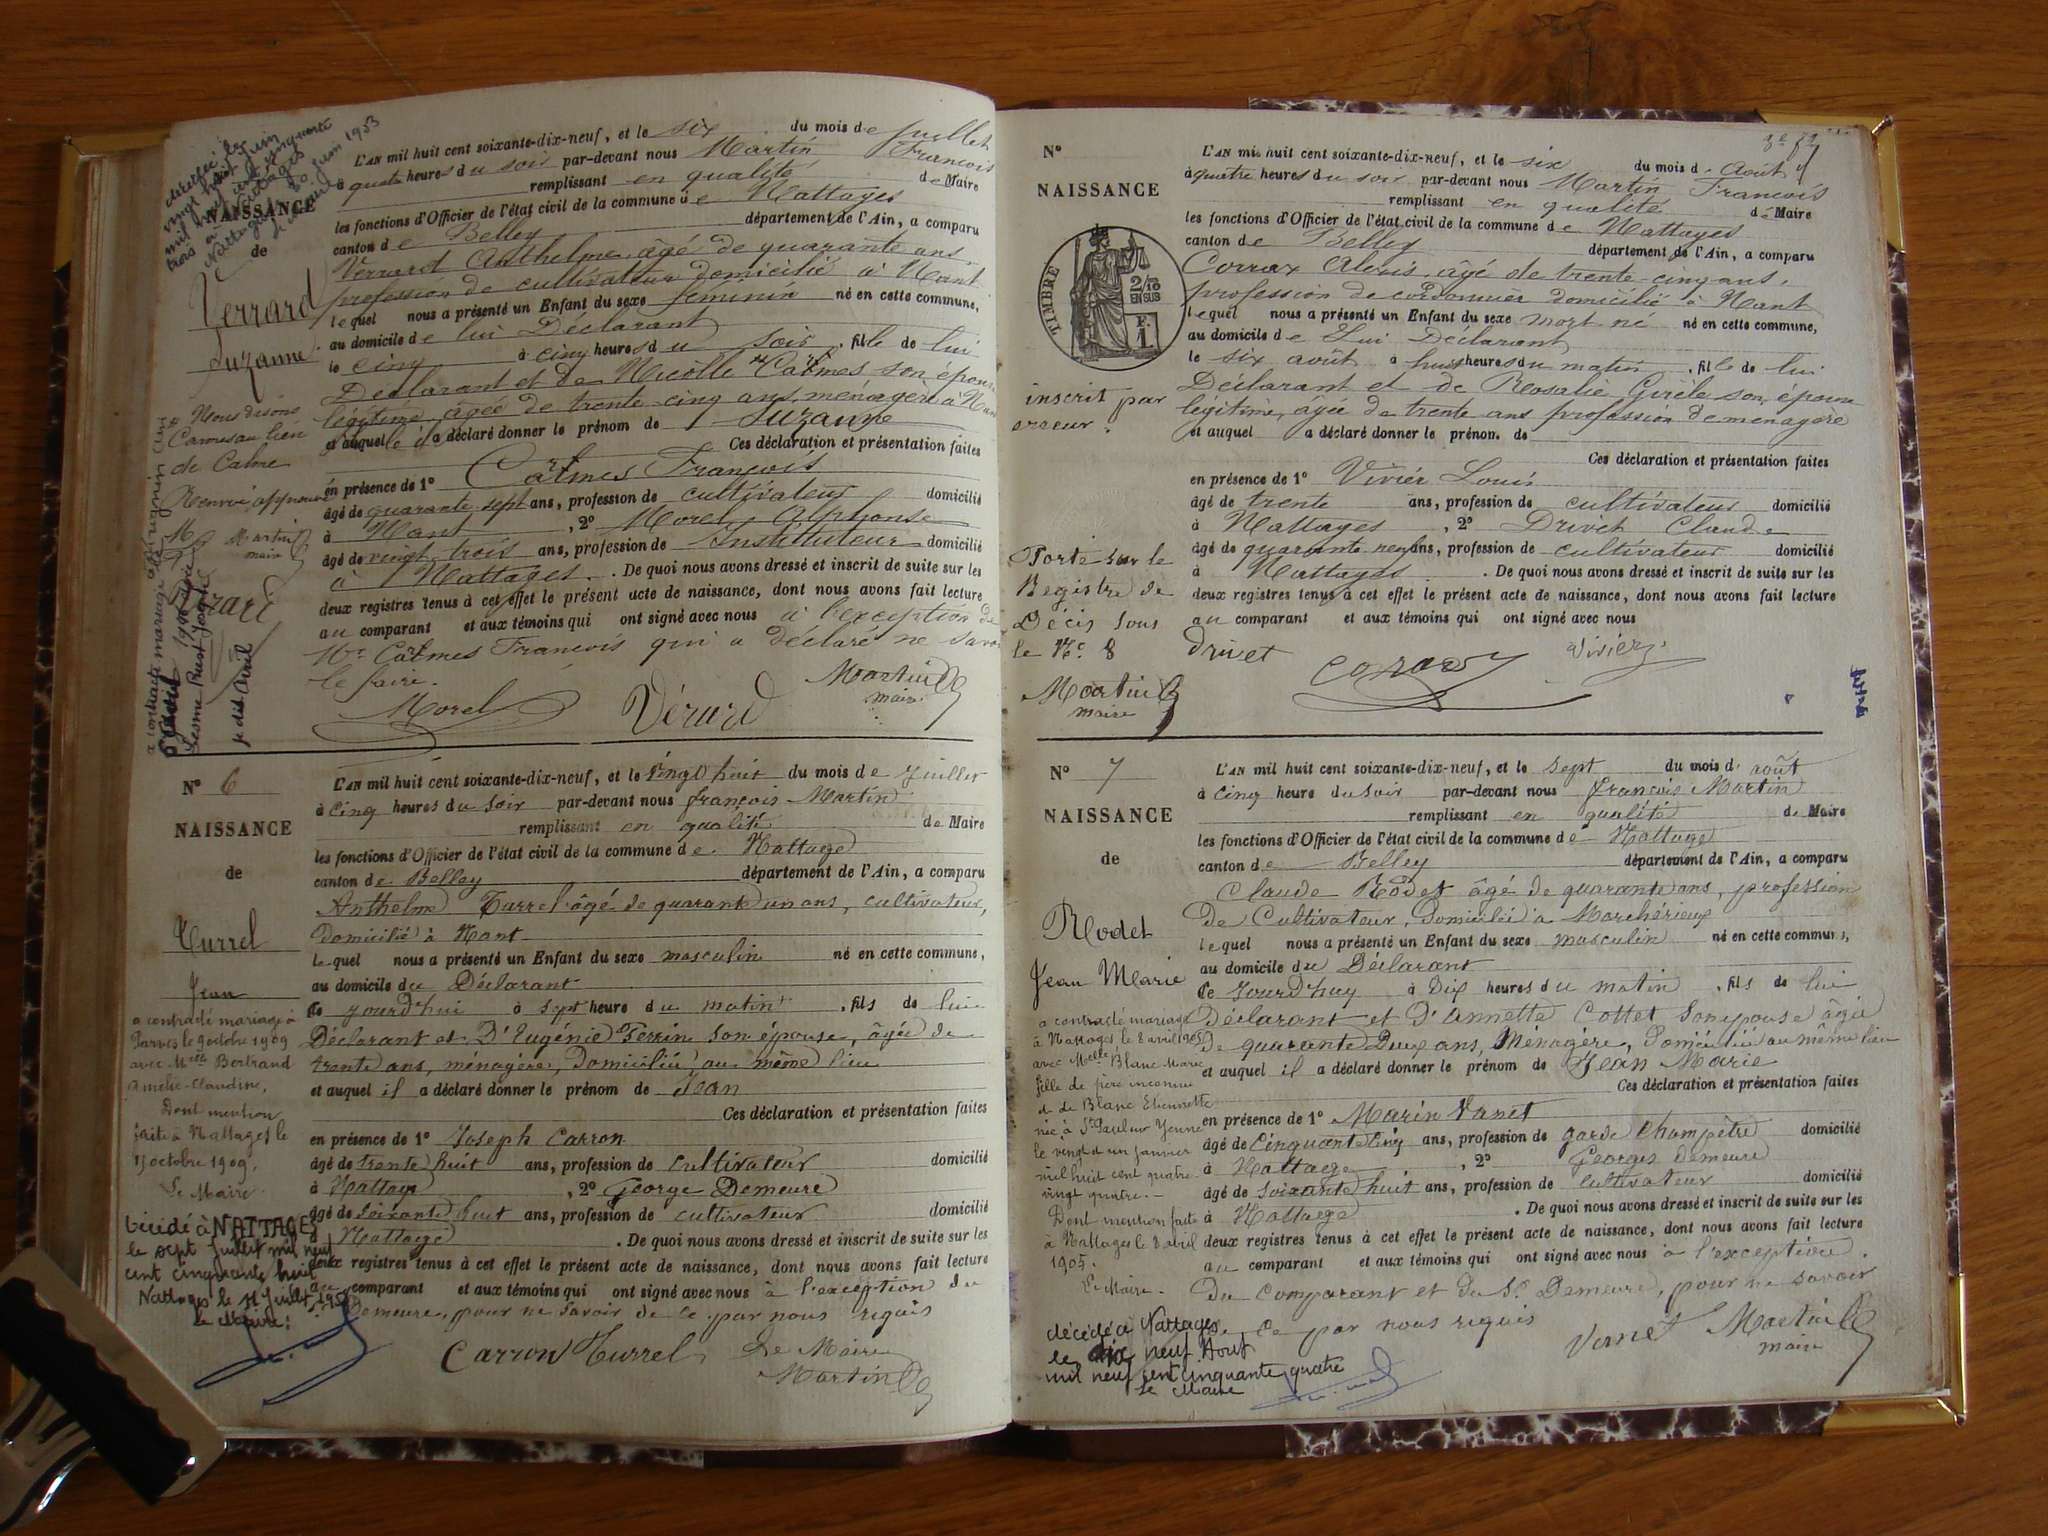 NAISSANCE
de
Verrard
Suzanne
L'AN mil huit cent soixante-dix-neuf, et le six du mois de Juillet
à quatre heures du soir par-devant nous Martin François
remplissant en qualité de Maire
les fonctions d'Officier de l'état civil de la commune de Nattages
canton de Belley département de l'Ain, a comparu
Verrard Anthelme, âgé de quarante ans,
profession de cultivateur domicilié à Nant
lequel nous a présenté un Enfant du sexe féminin né en cette commune,
au domicile de lui Déclarant
le cinq à cinq heures du soir, fille de lui
Déclarant et de Nicolle Carmes son épouse
légitime, âgée de trente cinq ans, ménagère à Nant
et auquel il a déclaré donner le prénom de Suzanne
Ces déclaration et présentation faites
en présence de 1° Carmes François
âgé de quarante sept ans, profession de cultivateur domicilié
à Nant, 2° Morel Alphonse
âgé de vingt trois ans, profession de instituteur domicilié
à Nattages. De quoi nous avons dressé et inscrit de suite sur les
deux registres tenus à cet effet le présent acte de naissance, dont nous avons fait lecture
au comparant et aux témoins qui ont signé avec nous à l'exception de
Mr Carmes François qui a déclaré ne savoir
le faire.
Morel Vérard Martin
maire
Nous disons
Carmes au lieu
de Calme
Renvoi approuvé
Martin
maire
N° 6
NAISSANCE
de
Turrel
Jean
L'AN mil huit cent soixante-dix-neuf, et le vingt huit du mois de Juillet
à cinq heures du soir par-devant nous françois Martin
remplissant en qualité de Maire
les fonctions d'Officier de l'état civil de la commune de Nattage
canton de Belley département de l'Ain, a comparu
Anthelme Turrel âgé de quarante un ans, cultivateur,
domicilié à Nant
lequel nous a présenté un Enfant du sexe masculin né en cette commune,
au domicile du Déclarant
Ce jourd'hui à sept heure du matin, fils de lui
Déclarant et D'Eugénie Perrin son épouse, âgée de
trente ans, ménagère, Domiciliée au même lieu
et auquel il a déclaré donner le prénom de Jean
Ces déclaration et présentation faites
en présence de 1° Joseph Carron
âgé de trente huit ans, profession de cultivateur domicilié
à Nattage, 2° George Demeure
âgé de soixante huit ans, profession de cultivateur domicilié
Nattage. De quoi nous avons dressé et inscrit de suite sur les
deux registres tenus à cet effet le présent acte de naissance, dont nous avons fait lecture
au comparant et aux témoins qui ont signé avec nous à l'exception du
Demeure, pour ne savoir de ce par nous requis
Carron Turrel Le Maire
Martin
a contracté mariage à
Parves le 9 octobre 1909
avec Melle Bertrand
Amélie-Claudine,
Dont mention
faite à Nattages le
octobre 1909.
Le Maire
Décédé à NATTAGES
le sept Juillet mil neuf
cent cinquante huit
Nattages le 11 Juillet 1958
le Maire:
N°
NAISSANCE
TIMBRE
2/10
EN SUS
F.
1
L'AN mil huit cent soixante-dix-neuf, et le six du mois d'Août
à quatre heures du soir par-devant nous Martin François
remplissant en qualité de Maire
les fonctions d'Officier de l'état civil de la commune de Nattages
canton de Belley département de l'Ain, a comparu
Corrax Alexis, âgé de trente-cinq ans,
profession de cordonnier domicilié à Nant
lequel nous a présenté un Enfant du sexe mort né né en cette commune,
au domicile de Lui Déclarant
le six août à huit heures du matin, fil de lui
Déclarant et de Rosalie Girèle son épouse
légitime, âgée de trente ans profession de ménagère
et auquel a déclaré donner le prénom de
Ces déclaration et présentation faites
en présence de 1° Vivier Louis
âgé de trente ans, profession de cultivateur domicilié
à Nattages, 2° Drivet Claude
âgé de quarante neuf ans, profession de cultivateur domicilié
à Nattages. De quoi nous avons dressé et inscrit de suite sur les
deux registres tenus à cet effet le présent acte de naissance, dont nous avons fait lecture
au comparant et aux témoins qui ont signé avec nous
Drivet vivier
inscrit par
erreur.
Porté sur le
Registre de
Décès sous
le N° 8
Martin
maire
N° 7
NAISSANCE
de
Rodet
Jean Marie
L'AN mil huit cent soixante-dix-neuf, et le sept du mois d'août
à cinq heure du soir par-devant nous françois Martin
remplissant en qualité de Maire
les fonctions d'Officier de l'état civil de la commune de Nattage
canton de Belley département de l'Ain, a comparu
Claude Rodet âgé de quarante ans, profession
De Cultivateur, Domicilié à
lequel nous a présenté un Enfant du sexe masculin né en cette commune,
au domicile du Déclarant
Ce Jourd'huy à Dix heures du matin, fils de lui
Déclarant et D'annette Cottet son épouse âgée
De quarante Deux ans, Ménagère, Domiciliée au même lieu
et auquel il a déclaré donner le prénom de Jean Marie
Ces déclaration et présentation faites
en présence de 1° Marin Vanet
âgé de Cinquante cinq ans, profession de garde champêtre domicilié
à Nattage, 2° Georges Demeure
âgé de Soixante huit ans, profession de cultivateur domicilié
à Nattage. De quoi nous avons dressé et inscrit de suite sur les
deux registres tenus à cet effet le présent acte de naissance, dont nous avons fait lecture
au comparant et aux témoins qui ont signé avec nous à l'exception
Du Comparant et du Sr Demeure, pour ne savoir
de ce par nous requis
Martin
maire
a contracté mariage
à Nattages, le 8 avril 1905
avec Melle Blanc Marie
fille de père inconnu
et de Blanc Etiennette
née à St Paul sur Yenne
le vingt un janvier
mil huit cent quatre
vingt quatre.-
Dont mention faite
à Nattages le 8 avril
1905.
Le Maire.
décédé à Nattages
le dix neuf Aout
mil neuf cent cinquante quatre
Le Maire